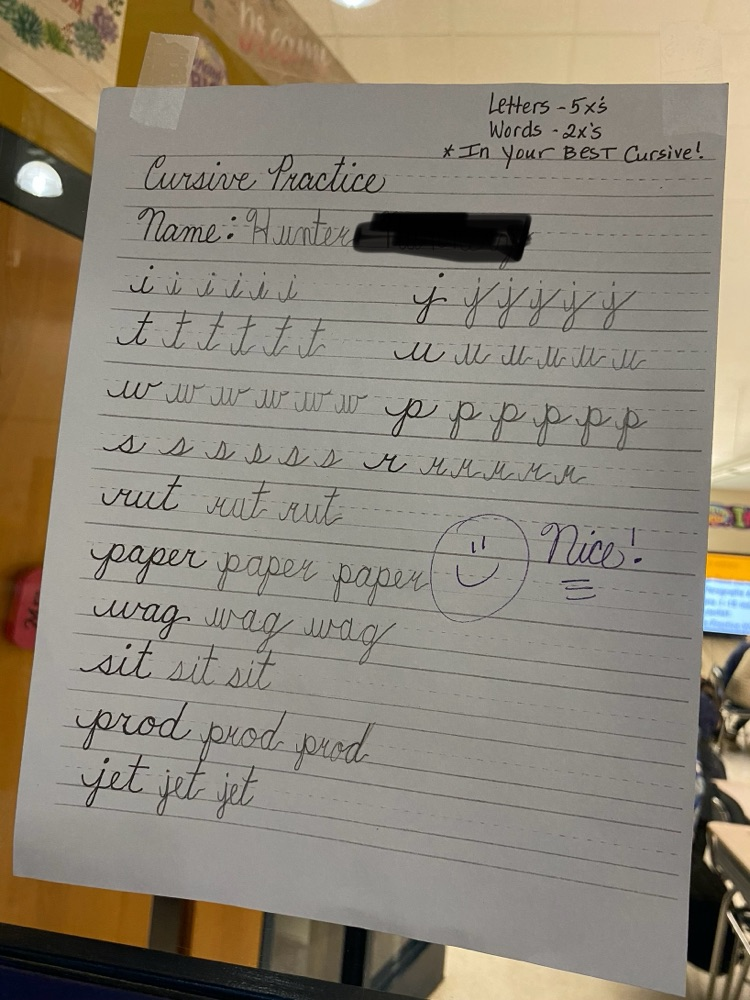 Letters - 5x's
Words - 2x's
* In Your BEST Cursive!
Cursive Practice
Name: Hunter
i i i i i i j j j j j j
t t t t t t u u u u u u
w w w w w w p p p p p p
s s s s s s r r r r r r
rut rut rut
paper paper paper Nice!
wag wag wag
sit sit sit
prod prod prod
jet jet jet
Dreams